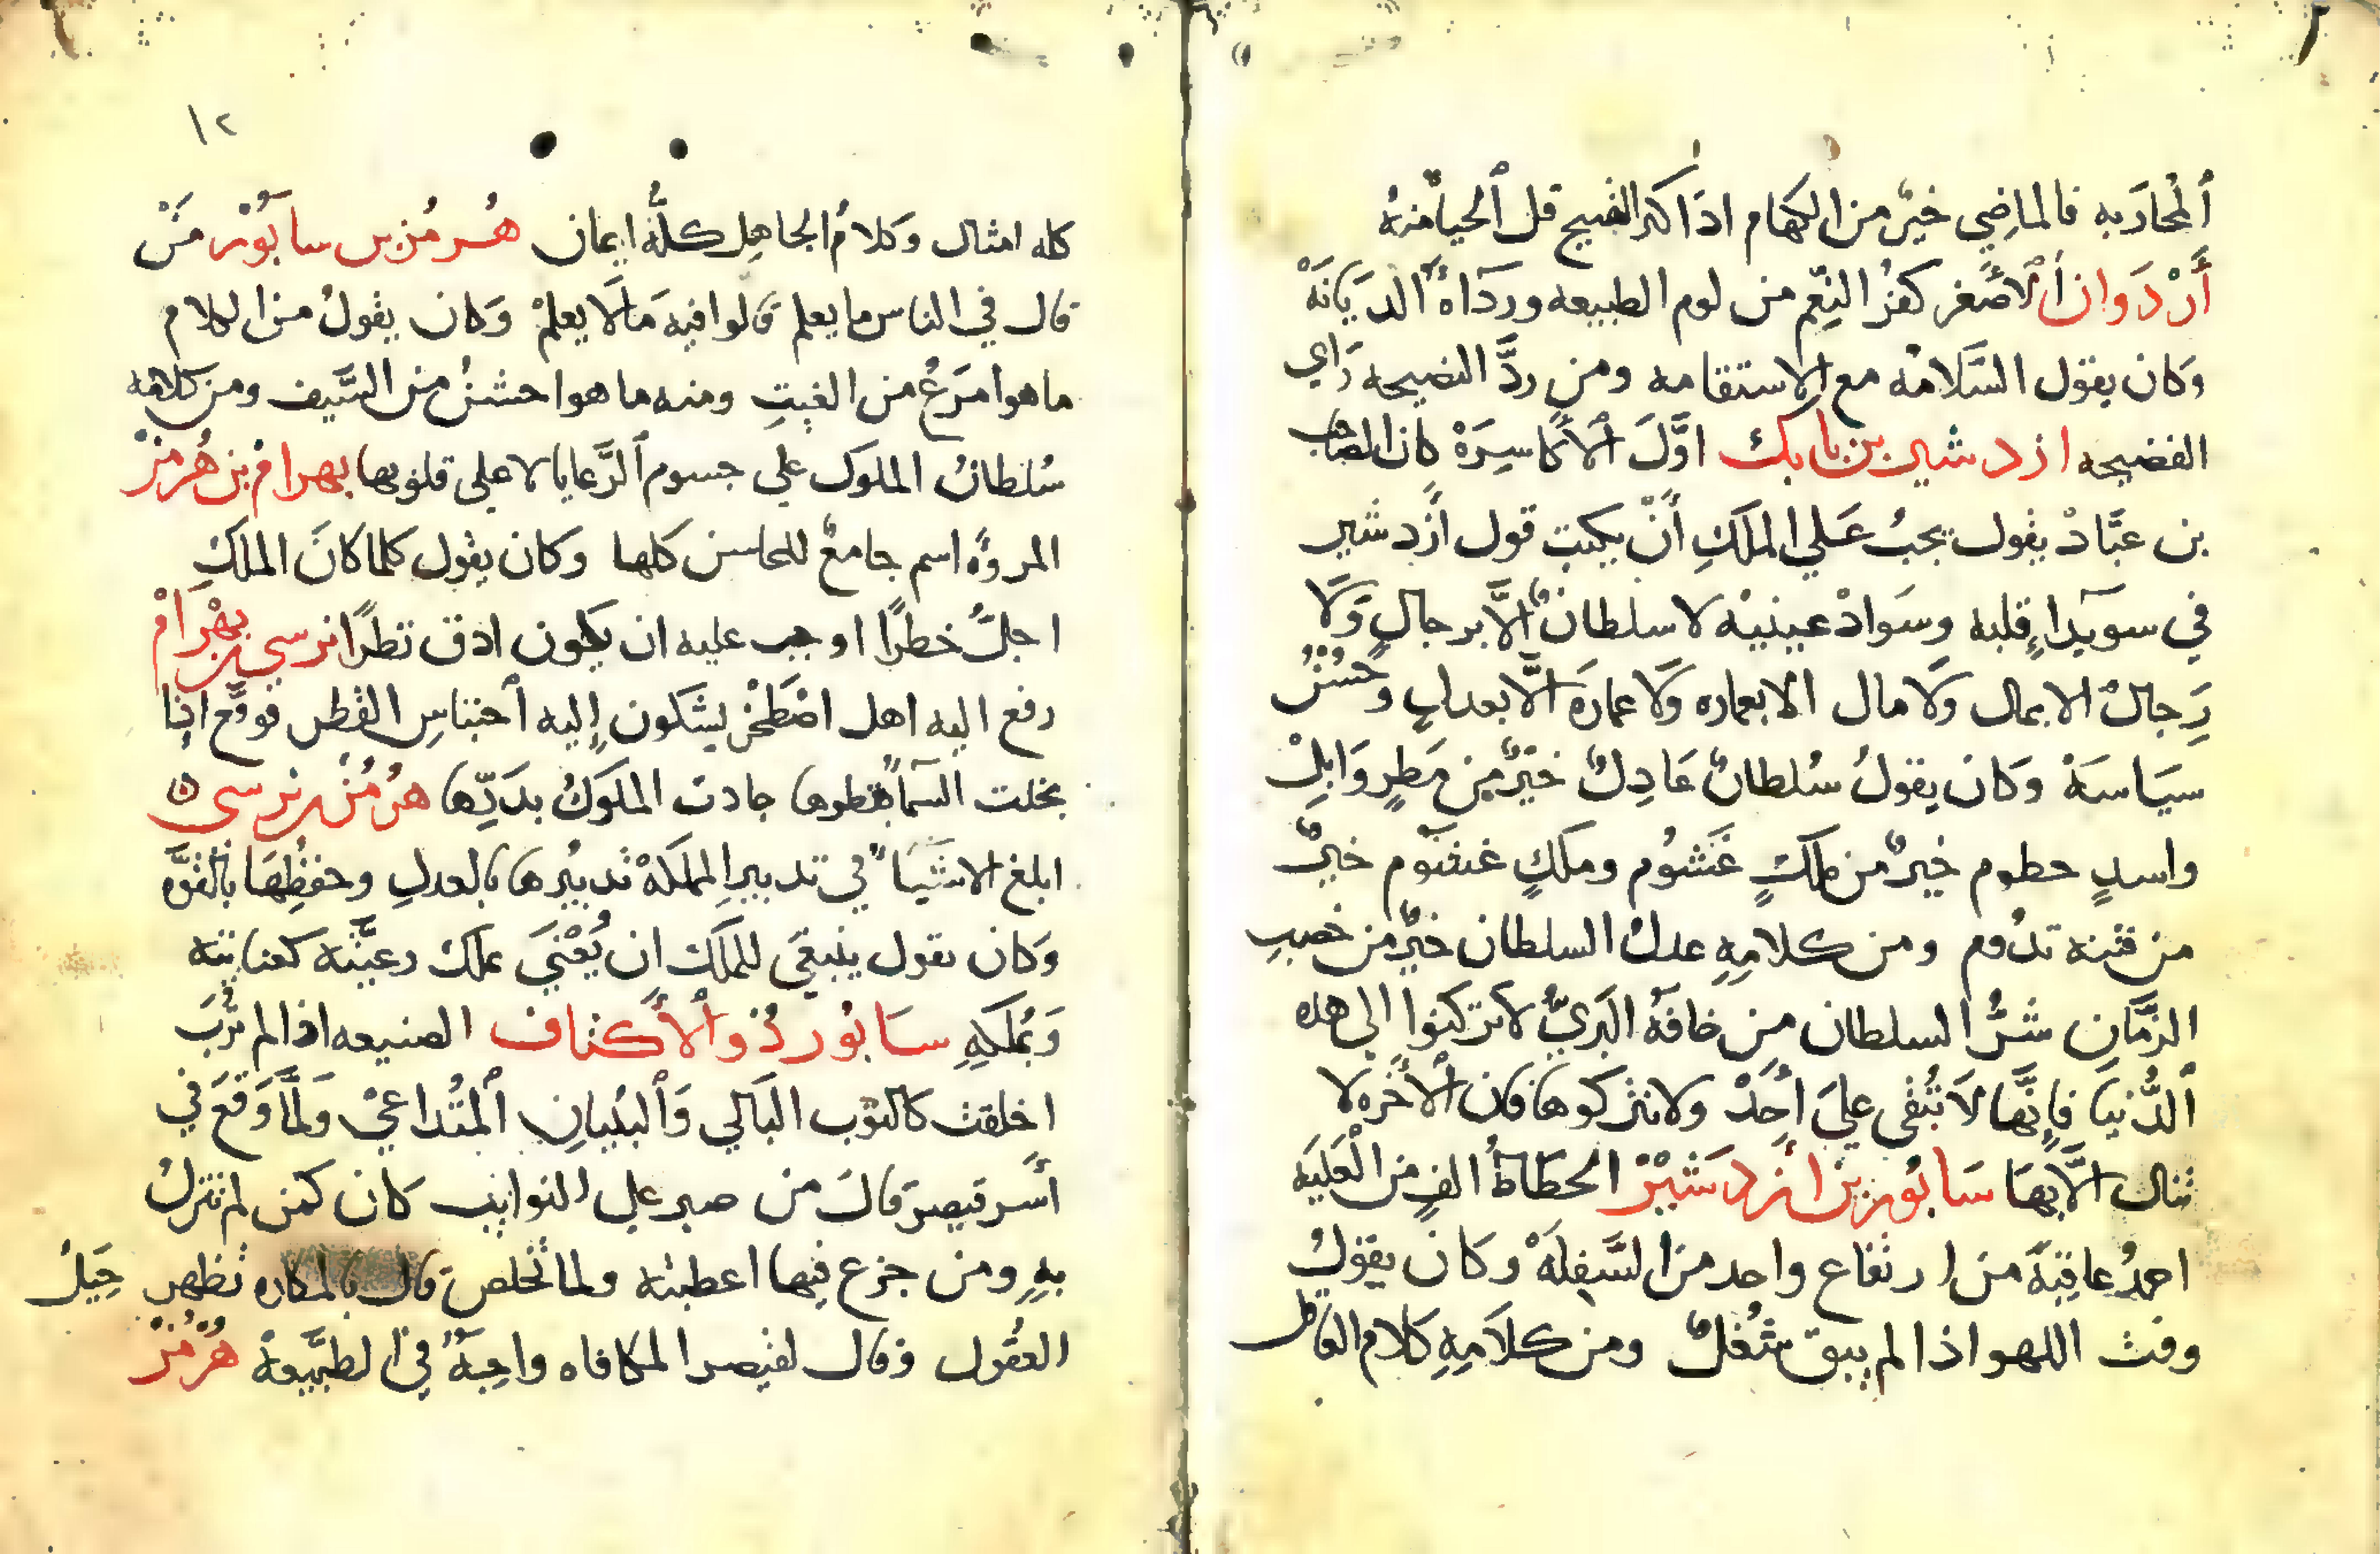 ٱلمُحادَبه فالماضِي خيرٌ من الكهام اذا كثر القبيح قل ٱلحيا منهُ
أَرْدَوان ٱلأصْغر كفرُ النِعَم من لوم الطبيعه ورداهُ الديَانَهْ
وَكان يقول السَّلامَه مع الاستقامه ومن ردَّ النصيحه رَاي
الفضيحه ازدشير بن بابك اوَّلَ ٱلأكاسِرَهْ كان الصاحب
بن عبَّادْ يقول يجبُ عَلي الملَكِ أنْ يكتب قول أزدشير
في سويدآءِ قلبه وسَوادْ عينيْه لا سلطانٌ الَّا برجالٍ وَلَا
رِجالٌ الا بمال وَلَا مال الا بعماره وَلَا عمارَه الَّا بعدلٍ وحُسْنُ
سيَاسَهْ وَكان يقولُ سُلطانٌ عَادِلٌ خيرٌ من مَطرٍ وَابلْ
واسدٍ حطوم خيرٌ من ملكٍ غَشوُم وملكٍ غشوم خيرٌ
من فتنه تدُوم ومن كلامِهِ عدلُ السلطان خيرٌ من خصبِ
الزَّمَانِ شرُّ السلطان من خافهُ البَريُّ لا تركنوا الى هذه
ٱلدُّنيا فإنَّها لَا تُبْقي عليَ أَحَدْ ولا تتركوها فان ٱلأخره لا
تنال الَّا بهَا سَابُور بن أزدشَيْرْ انحطاطُ الفٍ من الْعَليَه
احمدُ عاقِبَةً من ارتفاع واحد من السَّفِلَهْ وكان يقولُ
وقت اللهو اذا لم يبق شُغلٌ ومن كلاَمِهِ كلام العاقل
١٢
كله امثال وَكلامُ الجاهِل كلُّه ايمان هُرمُز بن سابوُرْ مَنْ
قال في الناس ما يعلم قالوا فيه مَا لَا يعلمْ وَكان يقولُ من الكلام
ما هوا مَرَعُ من الغيثِ ومنه ما هوا خشنُ من السَّيف ومن كلامه
سُلطانُ الملوك علي جسوم ٱلرَّعايا لا على قلوبها بهرامْ بن هُرمُزْ
المروَّه اسم جامعٌ للمحاسن كلها وَكان يقول كلما كانَ الملكِ
اجلَّ خطرًا اوجب عليه ان يكون ادق نظرًا نرسي بن بهْرَامْ
رفع اليه اهل اصْطَخْر يشكون إليه ٱحتباسِ القطر فوقَّع اذا
بخلت السَّمآ بقطرها جادت الملوَكُ بدَرِّها هُرمُز بن نرسي
ابلغ الاشيَآء في تدبير المملكَهْ تدبيُرها بالعدلِ وحفظُهَا بالقوَّه
وَكان يقول ينبغَي للملَك ان يُعْنيَ بملك رعيَّته كعنايته
وَبُملكِهِ سَابوُر ذُو ٱلأَكتاف الصنيعه اذا لم تُربَ
اخلقت كالثوب البَالي وَٱلبُنيانِ ٱلمتُداعيْ وَلمَّا وَقَعَ في
أَسر قيصرَ قالَ من صبر على النوايب كان كمن لم تنزلْ
بهِ ومن جزع فيها اعطبته ولما تخلص قال بالمكاره تظهر حِيَلُ
العقُول وقال لقيصر المكافاه واجبَةٌ في الطبَّيعهْ هُرمُزْ